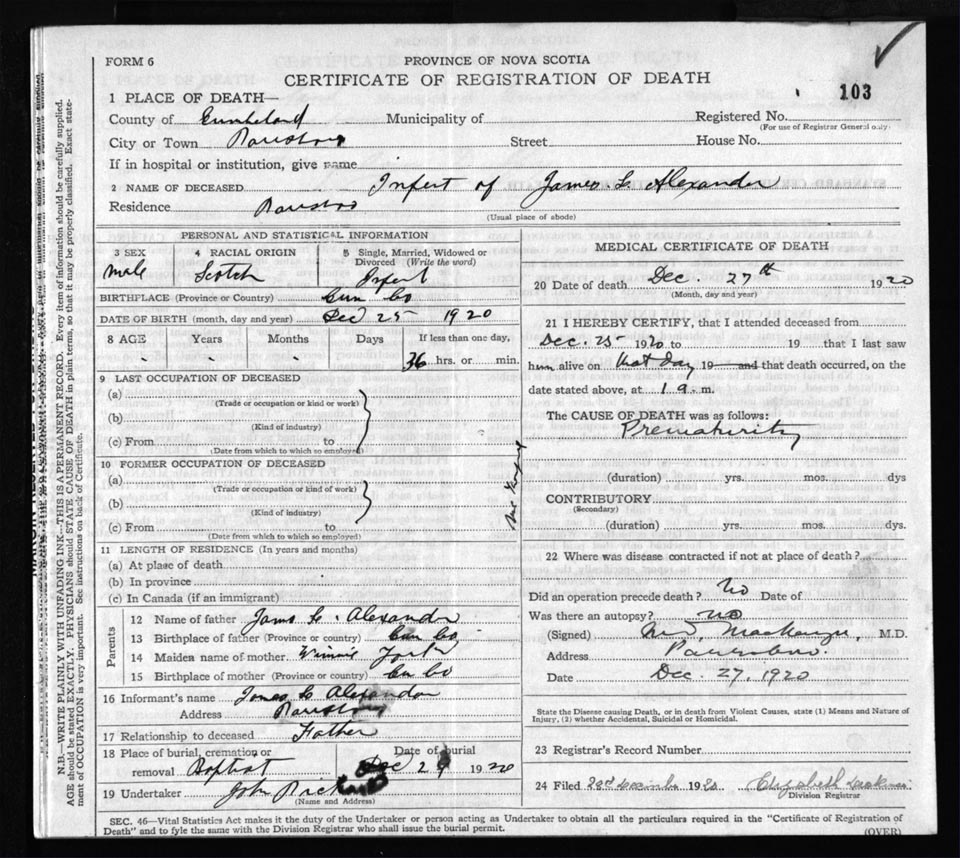 FORM 6
PROVINCE OF NOVA SCOTIA
CERTIFICATE OF REGISTRATION OF DEATH
103
1 PLACE OF DEATH—
County of Cumberland Municipality of Registered No.
(For use of Registrar General only)
City or Town Parrsboro Street House No.
If in hospital or institution, give name
2 NAME OF DECEASED Infert of James L. Alexander
Residence Parrsboro
(Usual place of abode)
PERSONAL AND STATISTICAL INFORMATION
3 SEX 4 RACIAL ORIGIN 5 Single, Married, Widowed or Divorced (Write the word)
Male Scotch Infert
BIRTHPLACE (Province or Country) Cum Co
DATE OF BIRTH (month, day and year) Dec 25 1920
8 AGE Years Months Days If less than one day,
36 hrs. or min.
9 LAST OCCUPATION OF DECEASED
(a)
(Trade or occupation or kind or work)
(b)
(Kind of industry)
(c) From to
(Date from which to which so employed)
10 FORMER OCCUPATION OF DECEASED
(a)
(Trade or occupation or kind of work)
(b)
(Kind of industry)
(c) From to
(Date from which to which so employed)
11 LENGTH OF RESIDENCE (In years and months)
(a) At place of death
(b) In province
(c) In Canada (if an immigrant)
Parents
12 Name of father James L. Alexander
13 Birthplace of father (Province or country) Cum Co
14 Maiden name of mother Winnie York
15 Birthplace of mother (Province or Country) Cum Co
16 Informant's name James L Alexander
Address Parrsboro
17 Relationship to deceased Father
18 Place of burial, cremation or removal Baptist Date of burial Dec 29 1920
19 Undertaker John
(Name and Address)
MEDICAL CERTIFICATE OF DEATH
20 Date of death Dec. 27th 1920
(Month, day and year)
21 I HEREBY CERTIFY, that I attended deceased from
Dec. 25 1920 to 19 that I last saw
him alive on that Day 19 and that death occurred, on the
date stated above, at 1 a. m.
The CAUSE OF DEATH was as follows:
Prematurity
(duration) yrs. mos. dys
CONTRIBUTORY
(Secondary)
(duration) yrs. mos. dys.
22 Where was disease contracted if not at place of death?
Did an operation precede death? No Date of
Was there an autopsy? no
(Signed) MacKenzie, M.D.
Address Parrsboro.
Date Dec. 27, 1920
State the Disease causing Death, or in death from Violent Causes, state (1) Means and Nature of
Injury, (2) whether Accidental, Suicidal or Homicidal.
23 Registrar's Record Number
24 Filed December 1920 Elizabeth
Division Registrar
SEC. 46—Vital Statistics Act makes it the duty of the Undertaker or person acting as Undertaker to obtain all the particulars required in the "Certificate of Registration of
Death" and to fyle the same with the Division Registrar who shall issue the burial permit.
(OVER)
N.B.—WRITE PLAINLY WITH UNFADING INK—THIS IS A PERMANENT RECORD. Every item of information should be carefully supplied.
AGE should be stated EXACTLY. PHYSICIANS should STATE CAUSE OF DEATH in plain terms, so that it may be properly classified. Exact statement of OCCUPATION is very important. See instructions on back of Certificate.